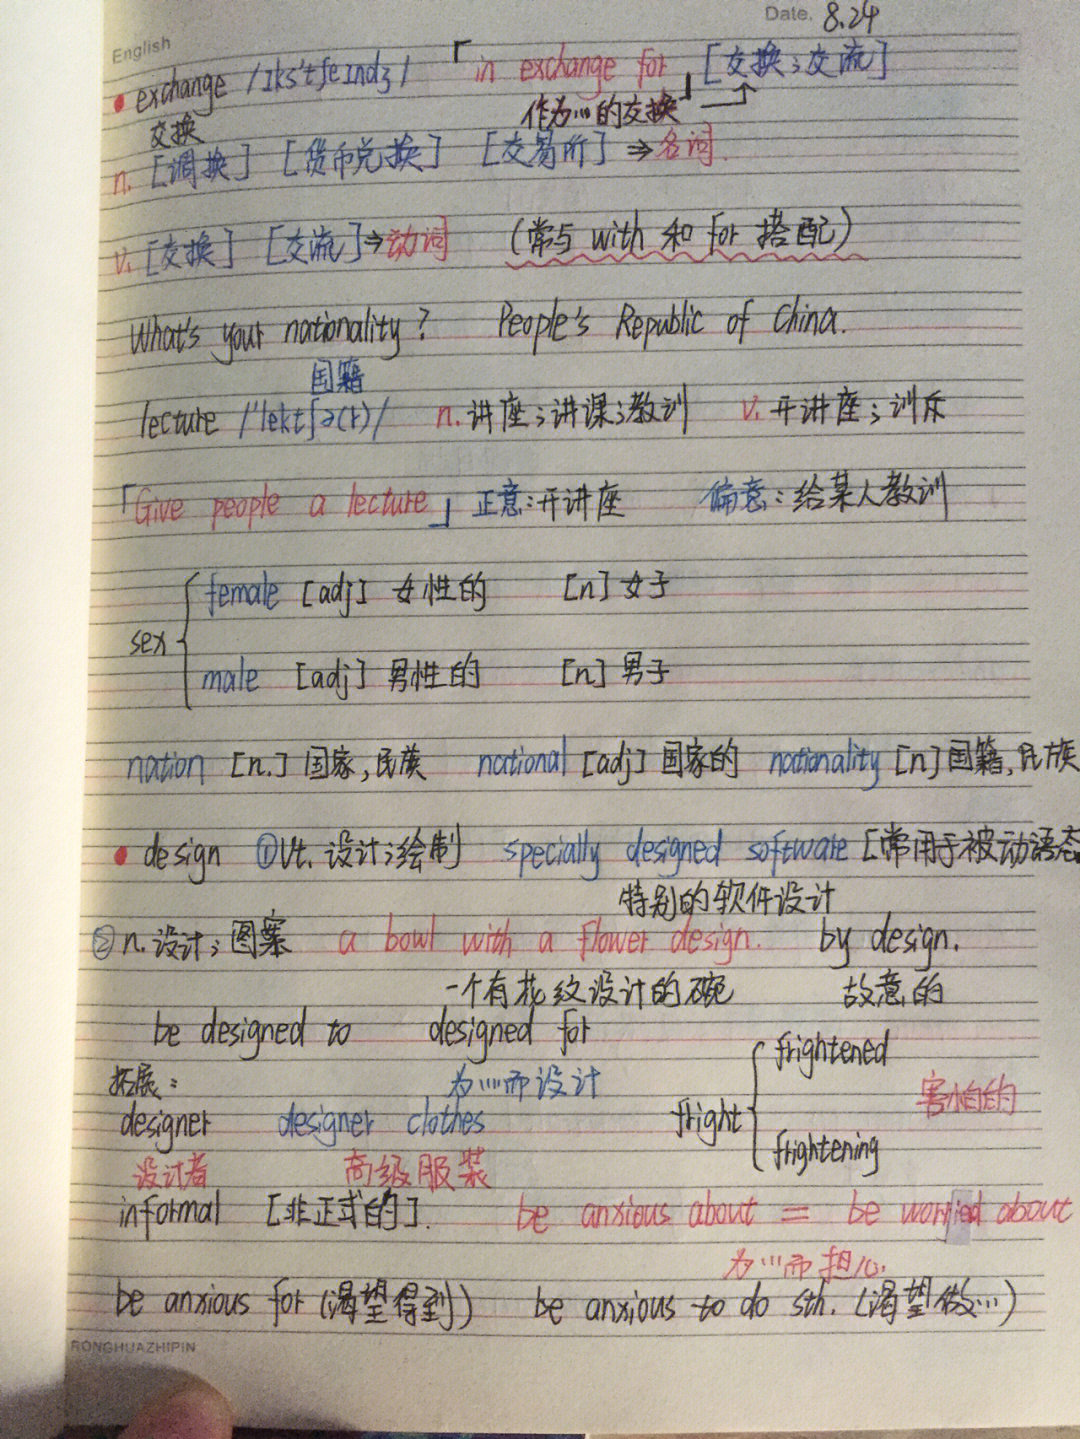 Date. 8.24
English
• exchange /ɪks'tʃeɪndʒ/ 「in exchange for」 [交换;交流]
交换 作为…的交换
n. [调换] [货币兑换] [交易所] ⇒名词.
v. [交换] [交流]⇒动词 (常与 with 和 for 搭配)
What's your nationality? People's Republic of China.
国籍
lecture /'lektʃə(r)/ n. 讲座;讲课;教训 v. 开讲座;训斥
「Give people a lecture」 正意:开讲座 偏意:给某人教训
female [adj] 女性的 [n] 女子
sex
male [adj] 男性的 [n] 男子
nation [n.] 国家,民族 national [adj] 国家的 nationality [n] 国籍,民族
• design ①Vt. 设计;绘制 specially designed software [常用于被动语态
特别的软件设计
②n. 设计;图案 a bowl with a flower design. by design.
一个有花纹设计的碗 故意的
be designed to designed for
frightened
拓展: 为…而设计 害怕的
designer designer clothes fright
frightening
设计者 高级服装
informal [非正式的]. be anxious about = be worried about
为…而担心.
be anxious for (渴望得到) be anxious to do sth. (渴望做…)
RONGHUAZHIPIN